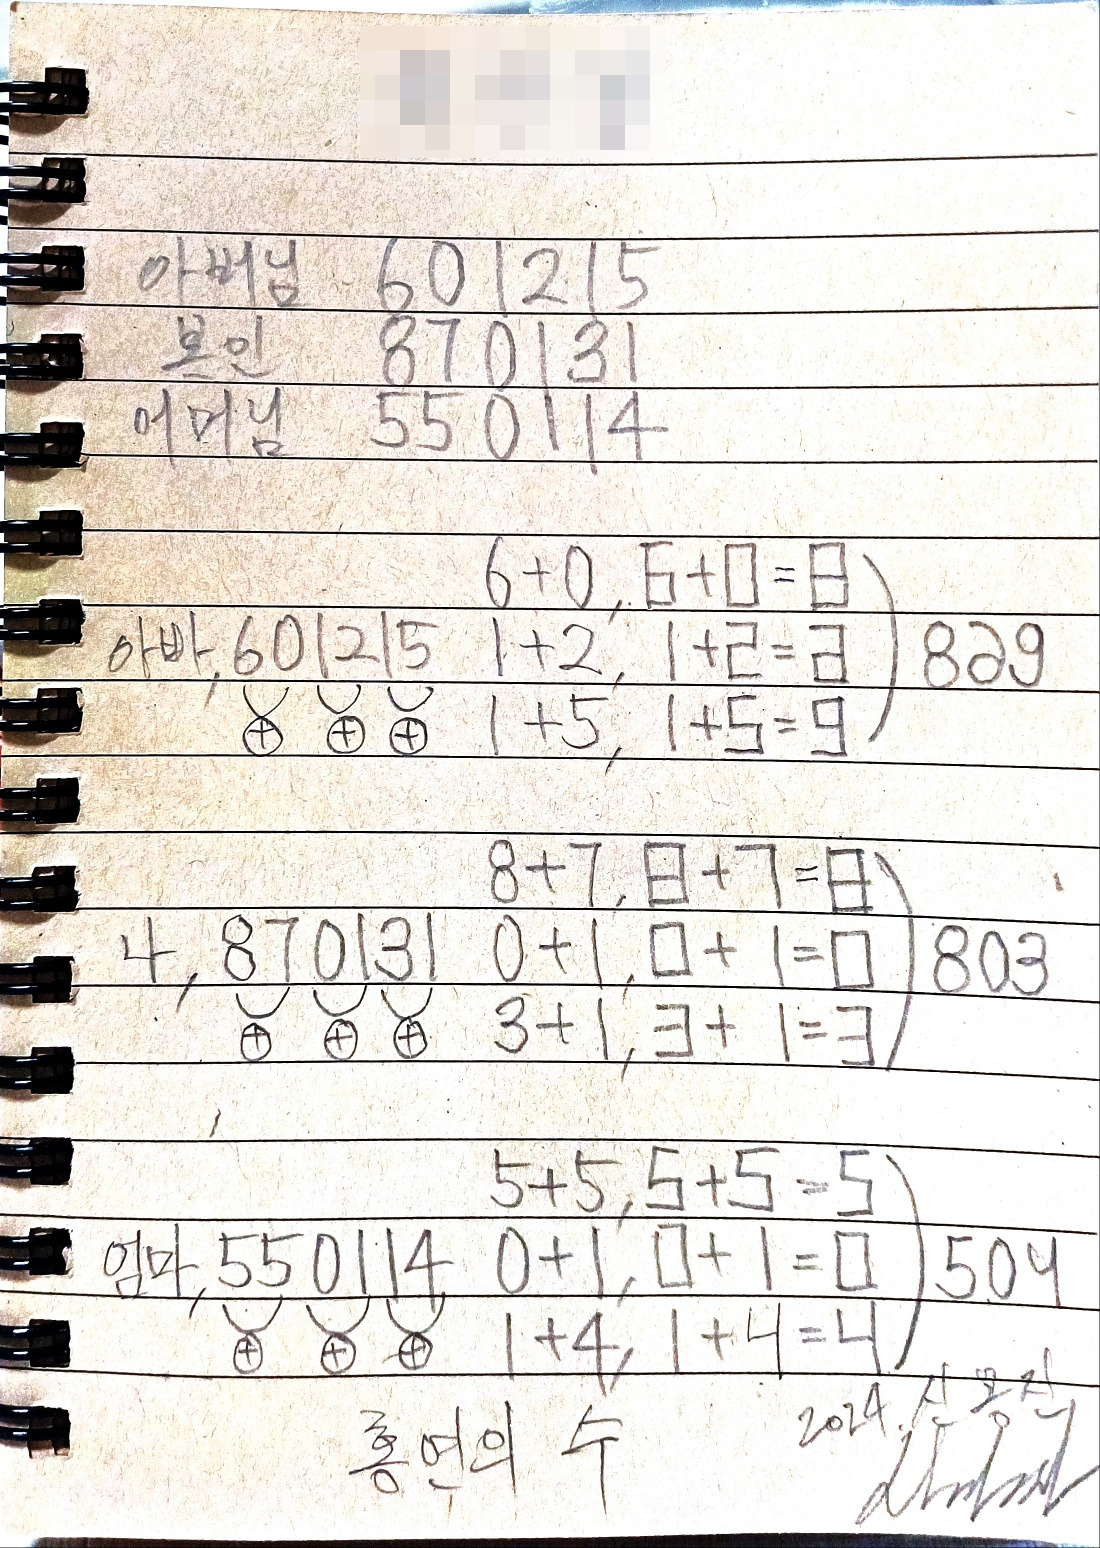 아버님 601215
본인 870131
어머님 550114
6+0, 6+0=8
아빠, 601215 1+2, 1+2=2 829
+ + + 1+5, 1+5=9
8+7, 8+7=8
나, 870131 0+1, 0+1=0 803
+ + + 3+1, 3+1=3
5+5, 5+5=5
엄마, 550114 0+1, 0+1=0 504
+ + + 1+4, 1+4=4
홍연의 수
2024.